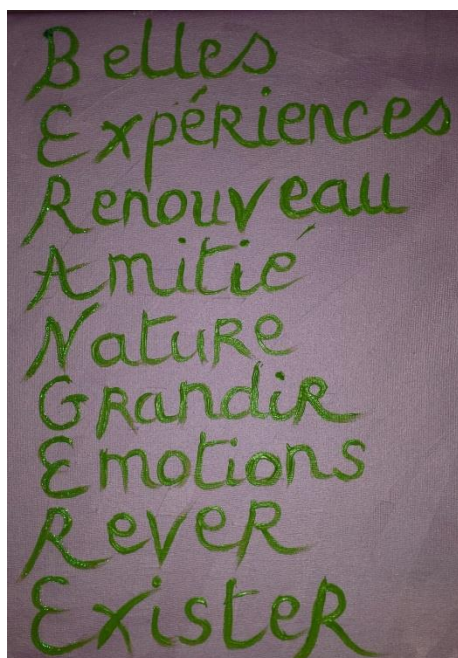 Belles
Expériences
Renouveau
Amitié
Nature
Grandir
Emotions
Rever
Exister